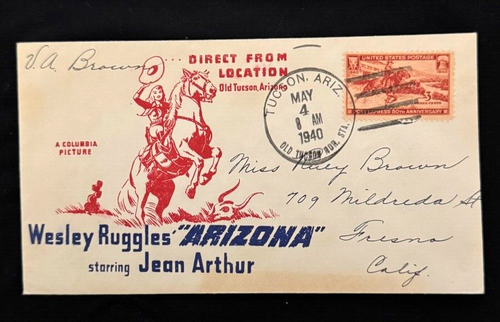 V.A. Brown
... DIRECT FROM
LOCATION
Old Tucson, Arizona
A COLUMBIA
PICTURE
Wesley Ruggles' "ARIZONA"
starring Jean Arthur
UNITED STATES POSTAGE
80TH ANNIVERSARY
TUCSON, ARIZ.
MAY
4
8 AM
1940
OLD TUCSON RUR. STA.
Miss Ruey Brown
709 Mildreda St
Fresno
Calif.